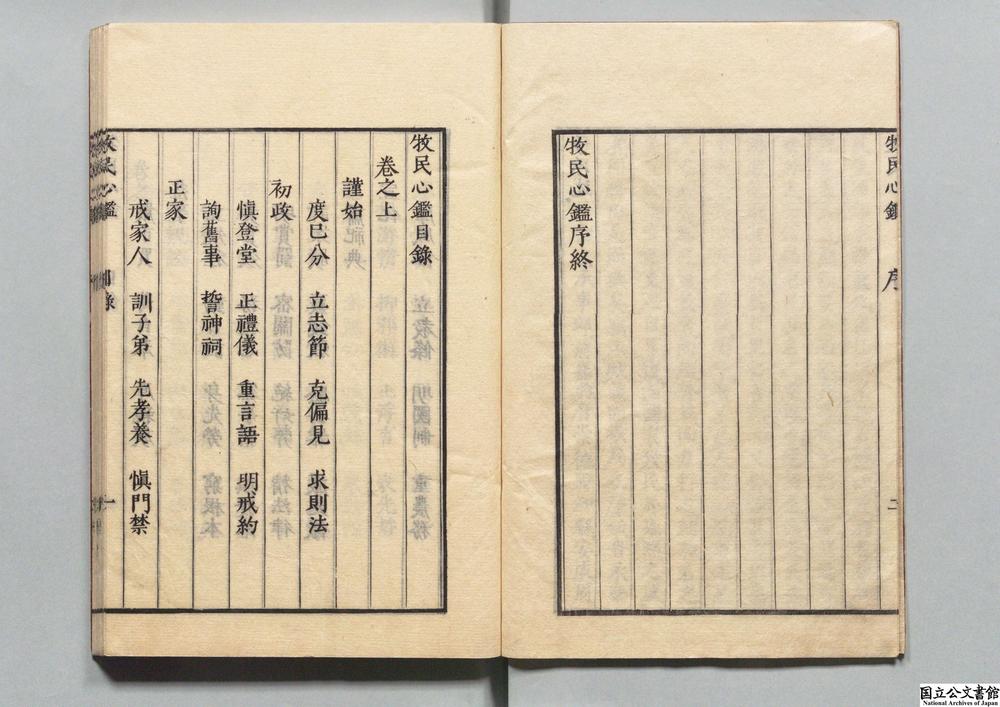 牧民心鑑 序 二
牧民心鑑序終
牧民心鑑目錄
卷之上
謹始
度已分 立志節 克偏見 求則法
初政
愼登堂 正禮儀 重言語 明戒約
詢舊事 誓神祠
正家
戒家人 訓子弟 先孝養 愼門禁
牧民心鑑 目錄 一
国立公文書館
National Archives of Japan